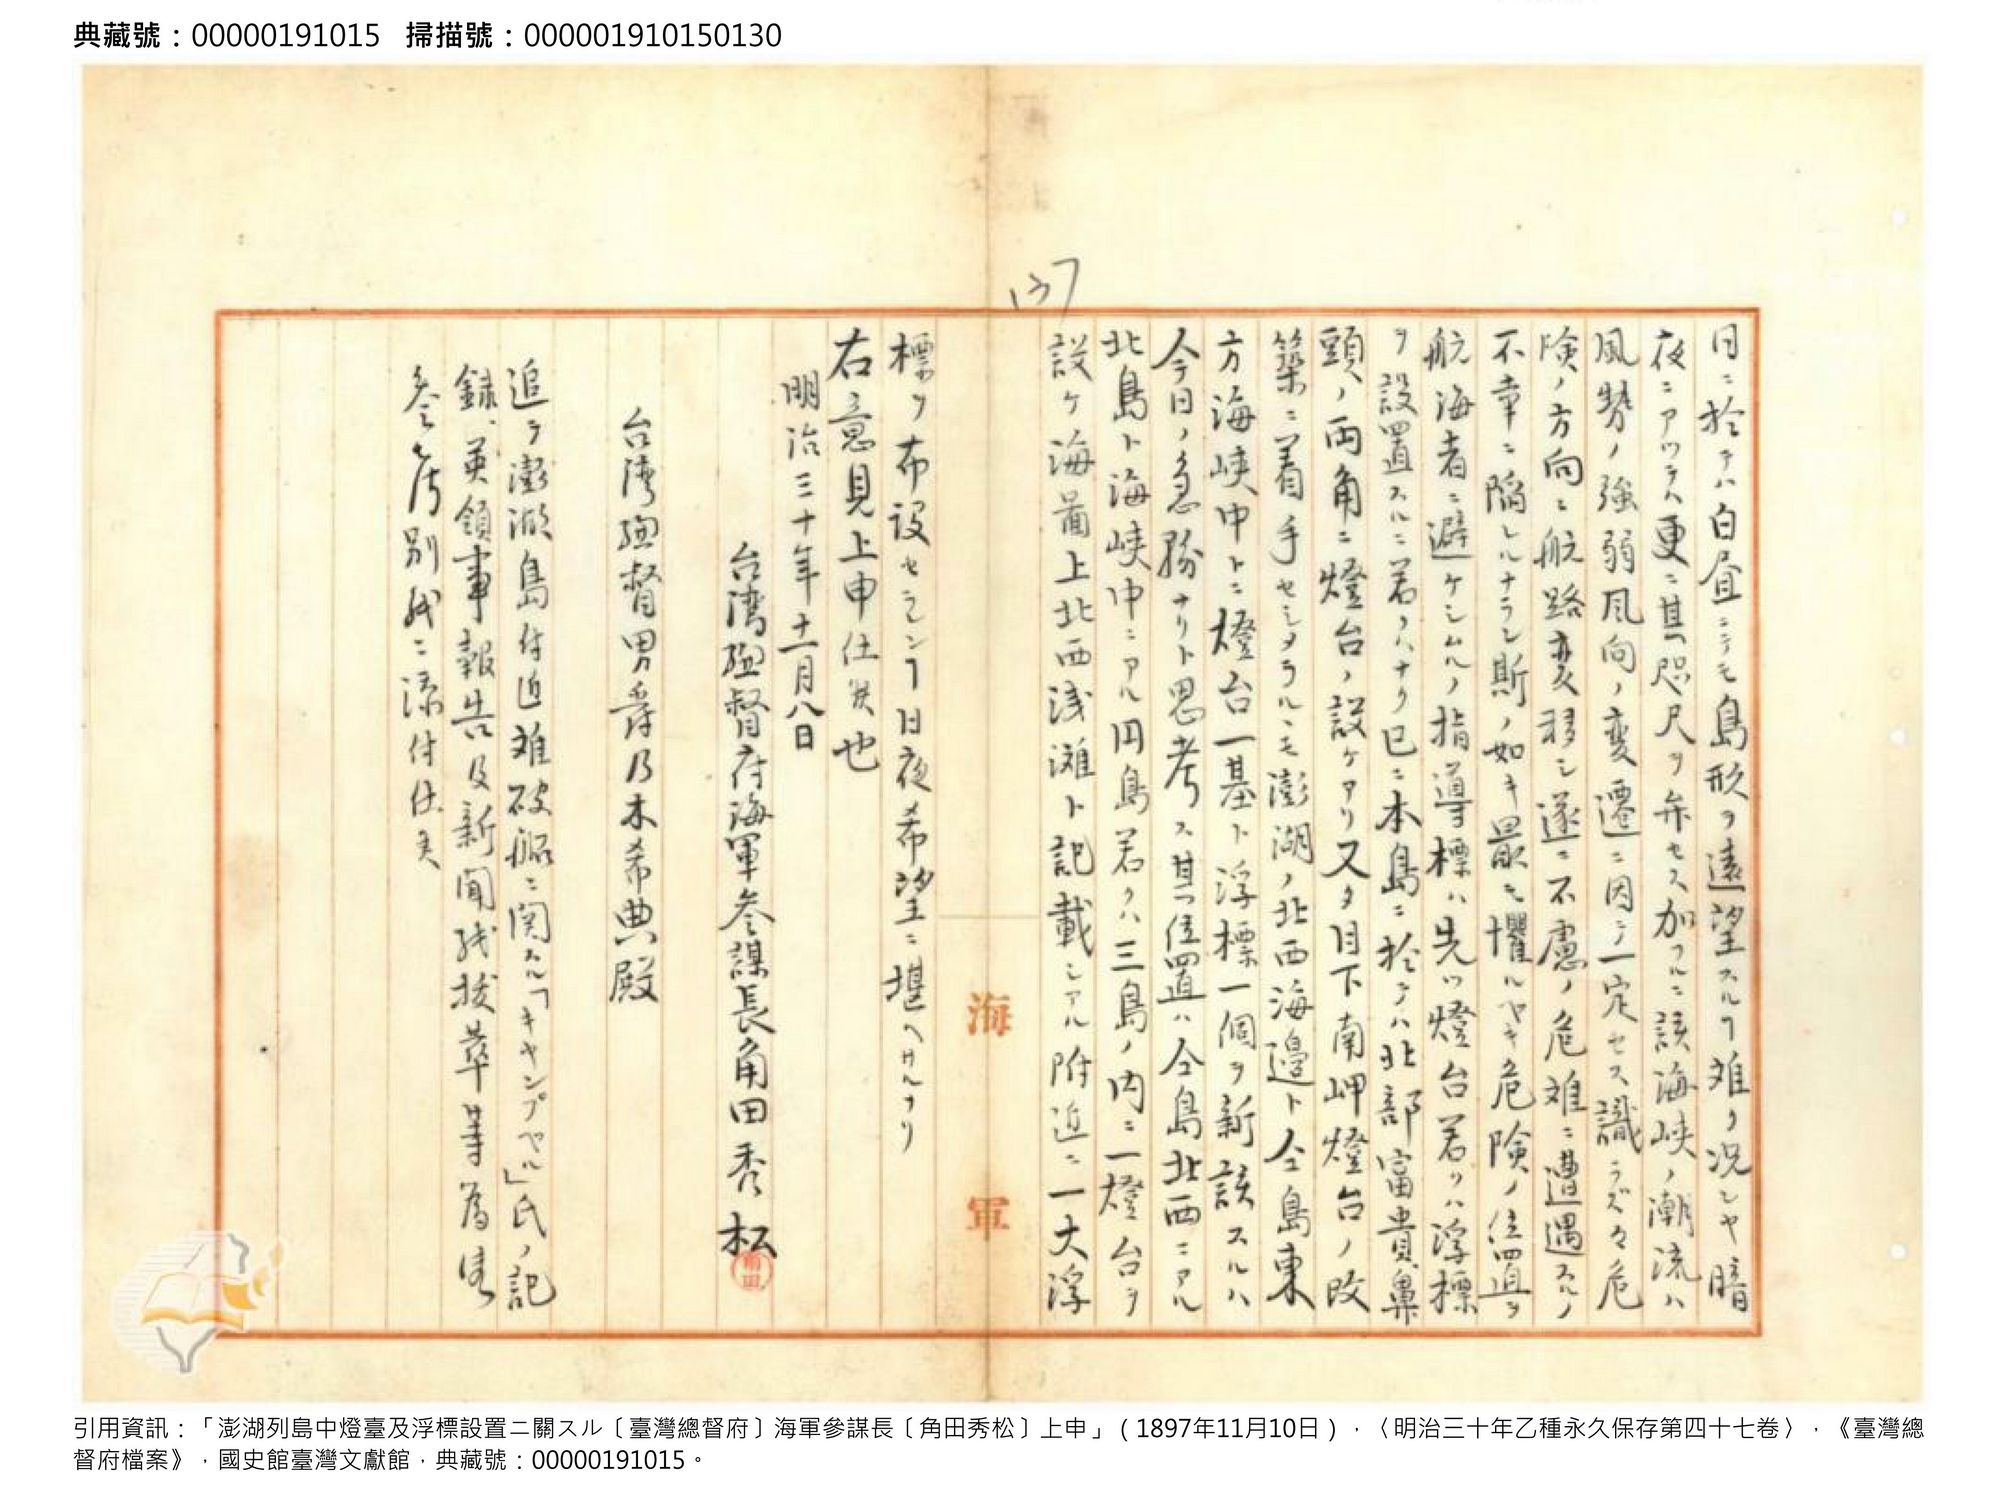 典藏號：00000191015 掃描號：000001910150130
137
日ニ於テハ白昼ニテモ島形ヲ遠望スルヿ难ク况ンヤ暗
夜ニアツテハ更ニ其咫尺ヲ弁セス加フルニ該海峡ノ潮流ハ
風勢ノ強弱風向ノ変遷ニ因テ一定セス識ラズ々危
険ノ方向ニ航路変移シ遂ニ不慮ノ危难ニ遭遇スルノ
不幸ニ陥レルナラン斯ノ如キ最モ懼ルヘキ危険ノ位置ヲ
航海者ニ避ケシムルノ指導標ハ先ツ燈台若クハ浮標
ヲ設置スルニ若クハナク已ニ本島ニ於テハ北部富貴鼻
頭ノ両角ニ燈台ノ設ケアリ又タ目下南岬燈台ノ改
築ニ着手セシメラルモ澎湖ノ北西海邉ト仝島東
方海峡中トニ燈台一基ト浮標一個ヲ新設スルハ
今日ノ急務ナリト思考ス其位置ハ仝島北西ニアル
北島ト海峡中ニアル円島若クハ三島ノ内ニ一燈台ヲ
設ケ海圖上北西浅灘ト記載シアル附近ニ一大浮
海軍
標ヲ布設セランヿ日夜希望ニ堪ヘサルナリ
右意見上申仕候也
明治三十年十一月八日
台湾総督府海軍参謀長角田秀松
角田
台湾総督男爵乃木希典殿
追テ澎湖島付近难破船ニ関スル「キヤンプベル」氏ノ記
録、英領事報告及新聞紙抜萃等為
参考別紙ニ添付仕候
引用資訊：「澎湖列島中燈臺及浮標設置ニ關スル〔臺灣總督府〕海軍參謀長〔角田秀松〕上申」（1897年11月10日），〈明治三十年乙種永久保存第四十七卷〉，《臺灣總
督府檔案》，國史館臺灣文獻館，典藏號：00000191015。